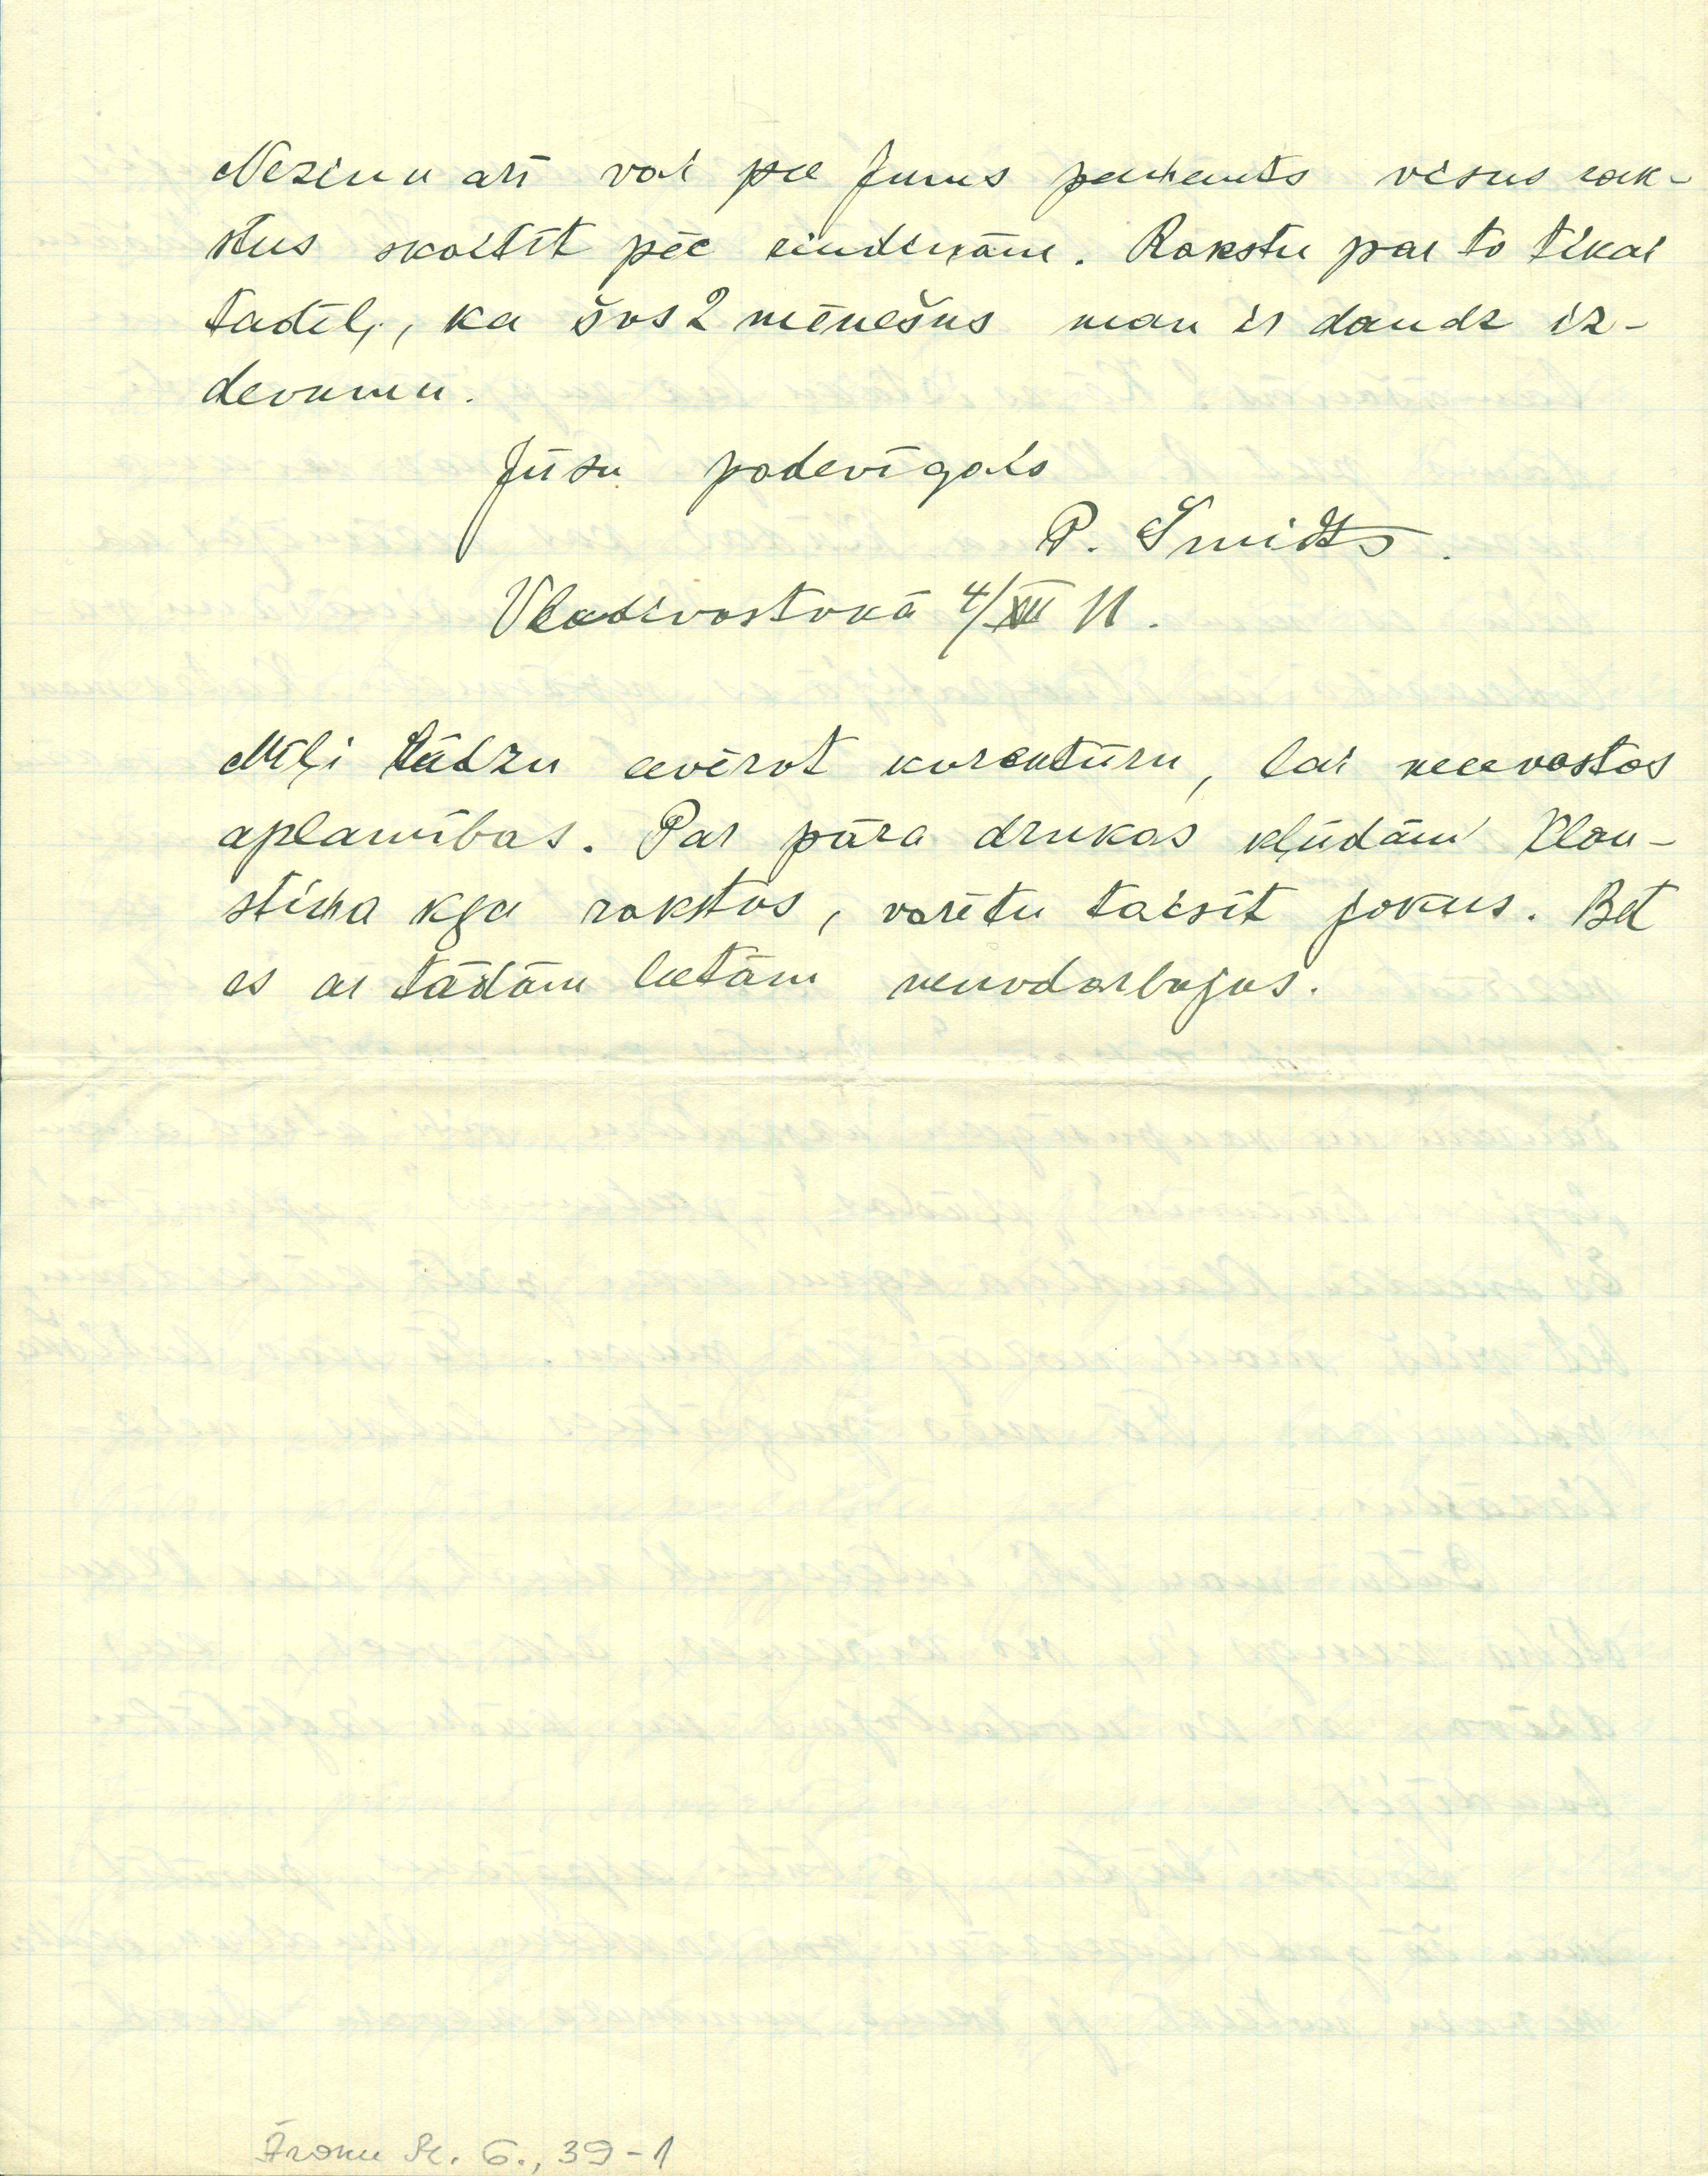 Nezinu arī vai pee Jums peeņemts visus rak-
stus skaitīt pēc rindiņām. Rakstu par to tikai
tadēļ, ka šos 2 mēnešus man ir daudz iz-
devumu.
Jūsu padevīgais
P. Šmidts.
Vladivostokā 4/XII 11.
Mīļi lūdzu eevērot korektūru, lai neeevostos
aplamības. Par pāra drukas kļūdām Klau-
stiņa kga rakstos, varētu taisīt jokus. Bet
es ar tādām leetām nenodarbojos.
Āronu M. 6., 39-1